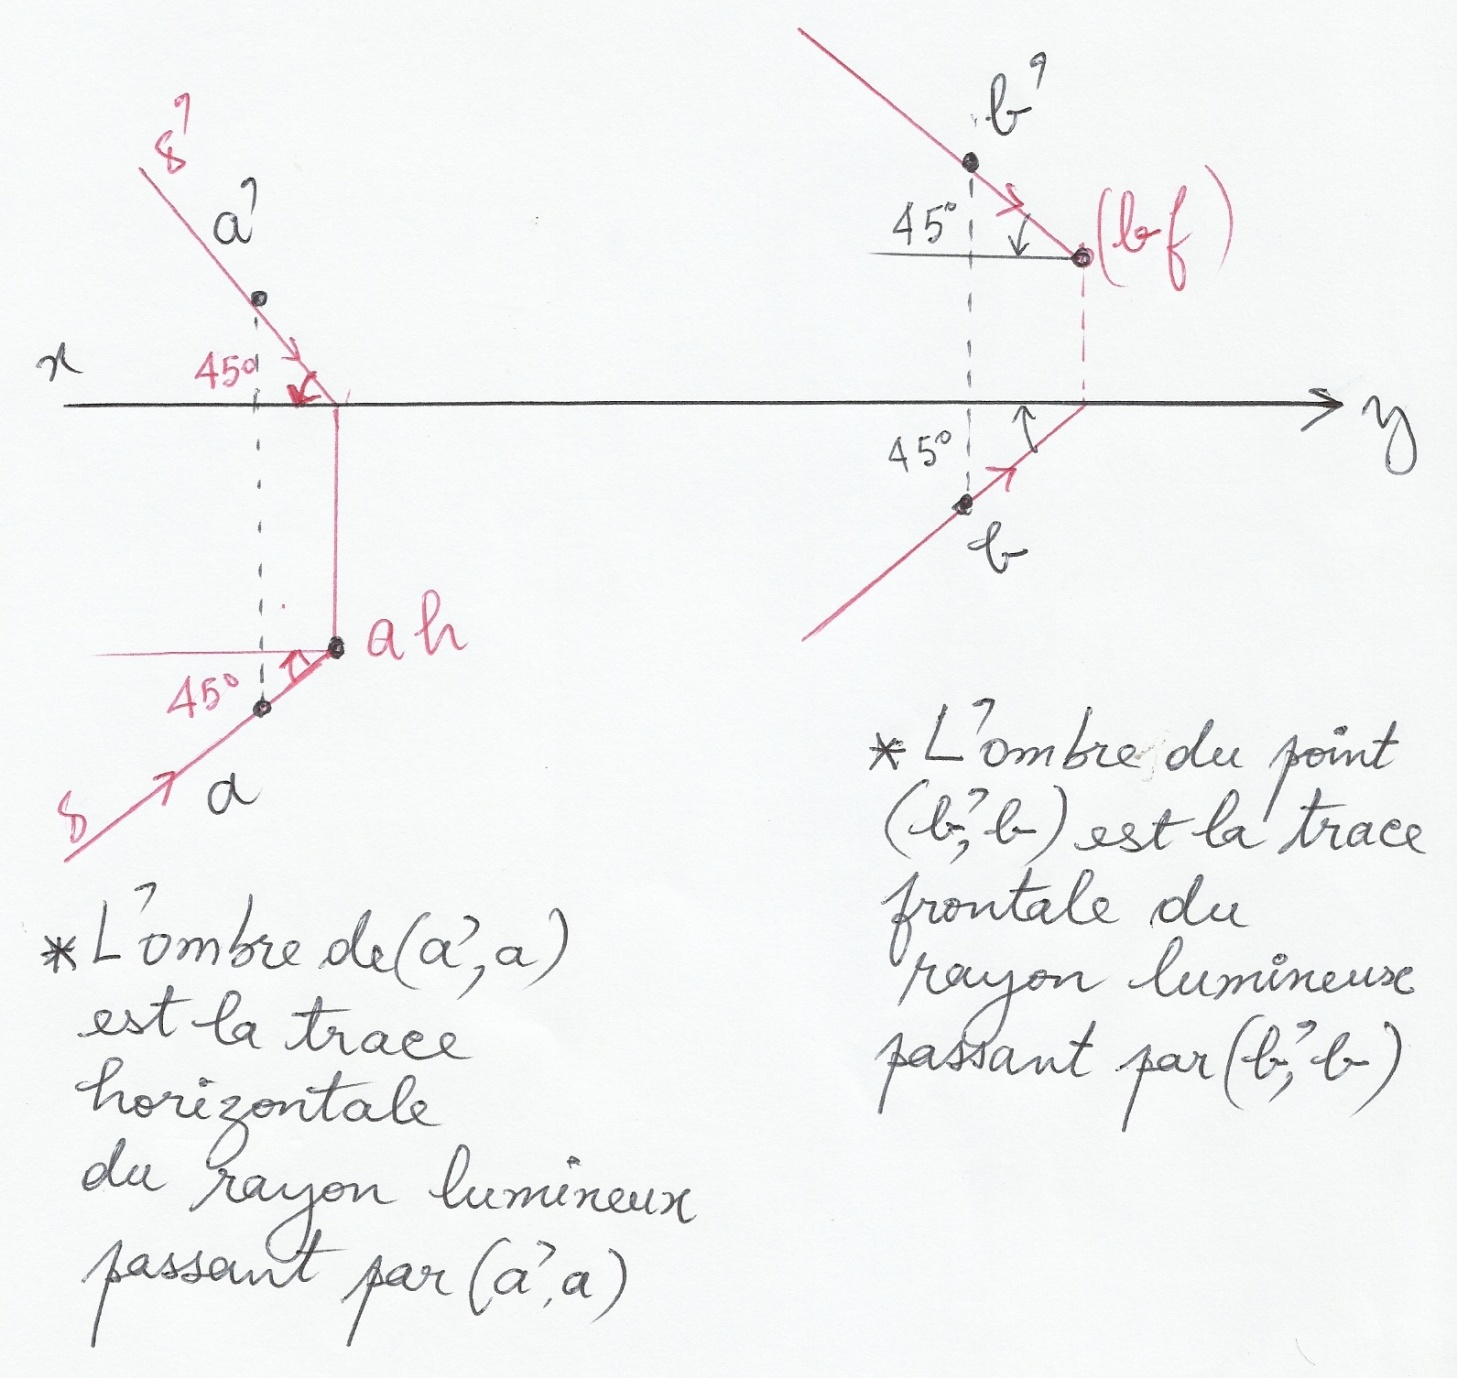 8'
a'
x
45°
45°
a h
8
a
b'
45°
(bf)
y
45°
b
* L'ombre de (a', a)
est la trace
horizontale
du rayon lumineux
passant par (a', a)
* L'ombre du point
(b', b) est la trace
frontale du
rayon lumineux
passant par (b', b)